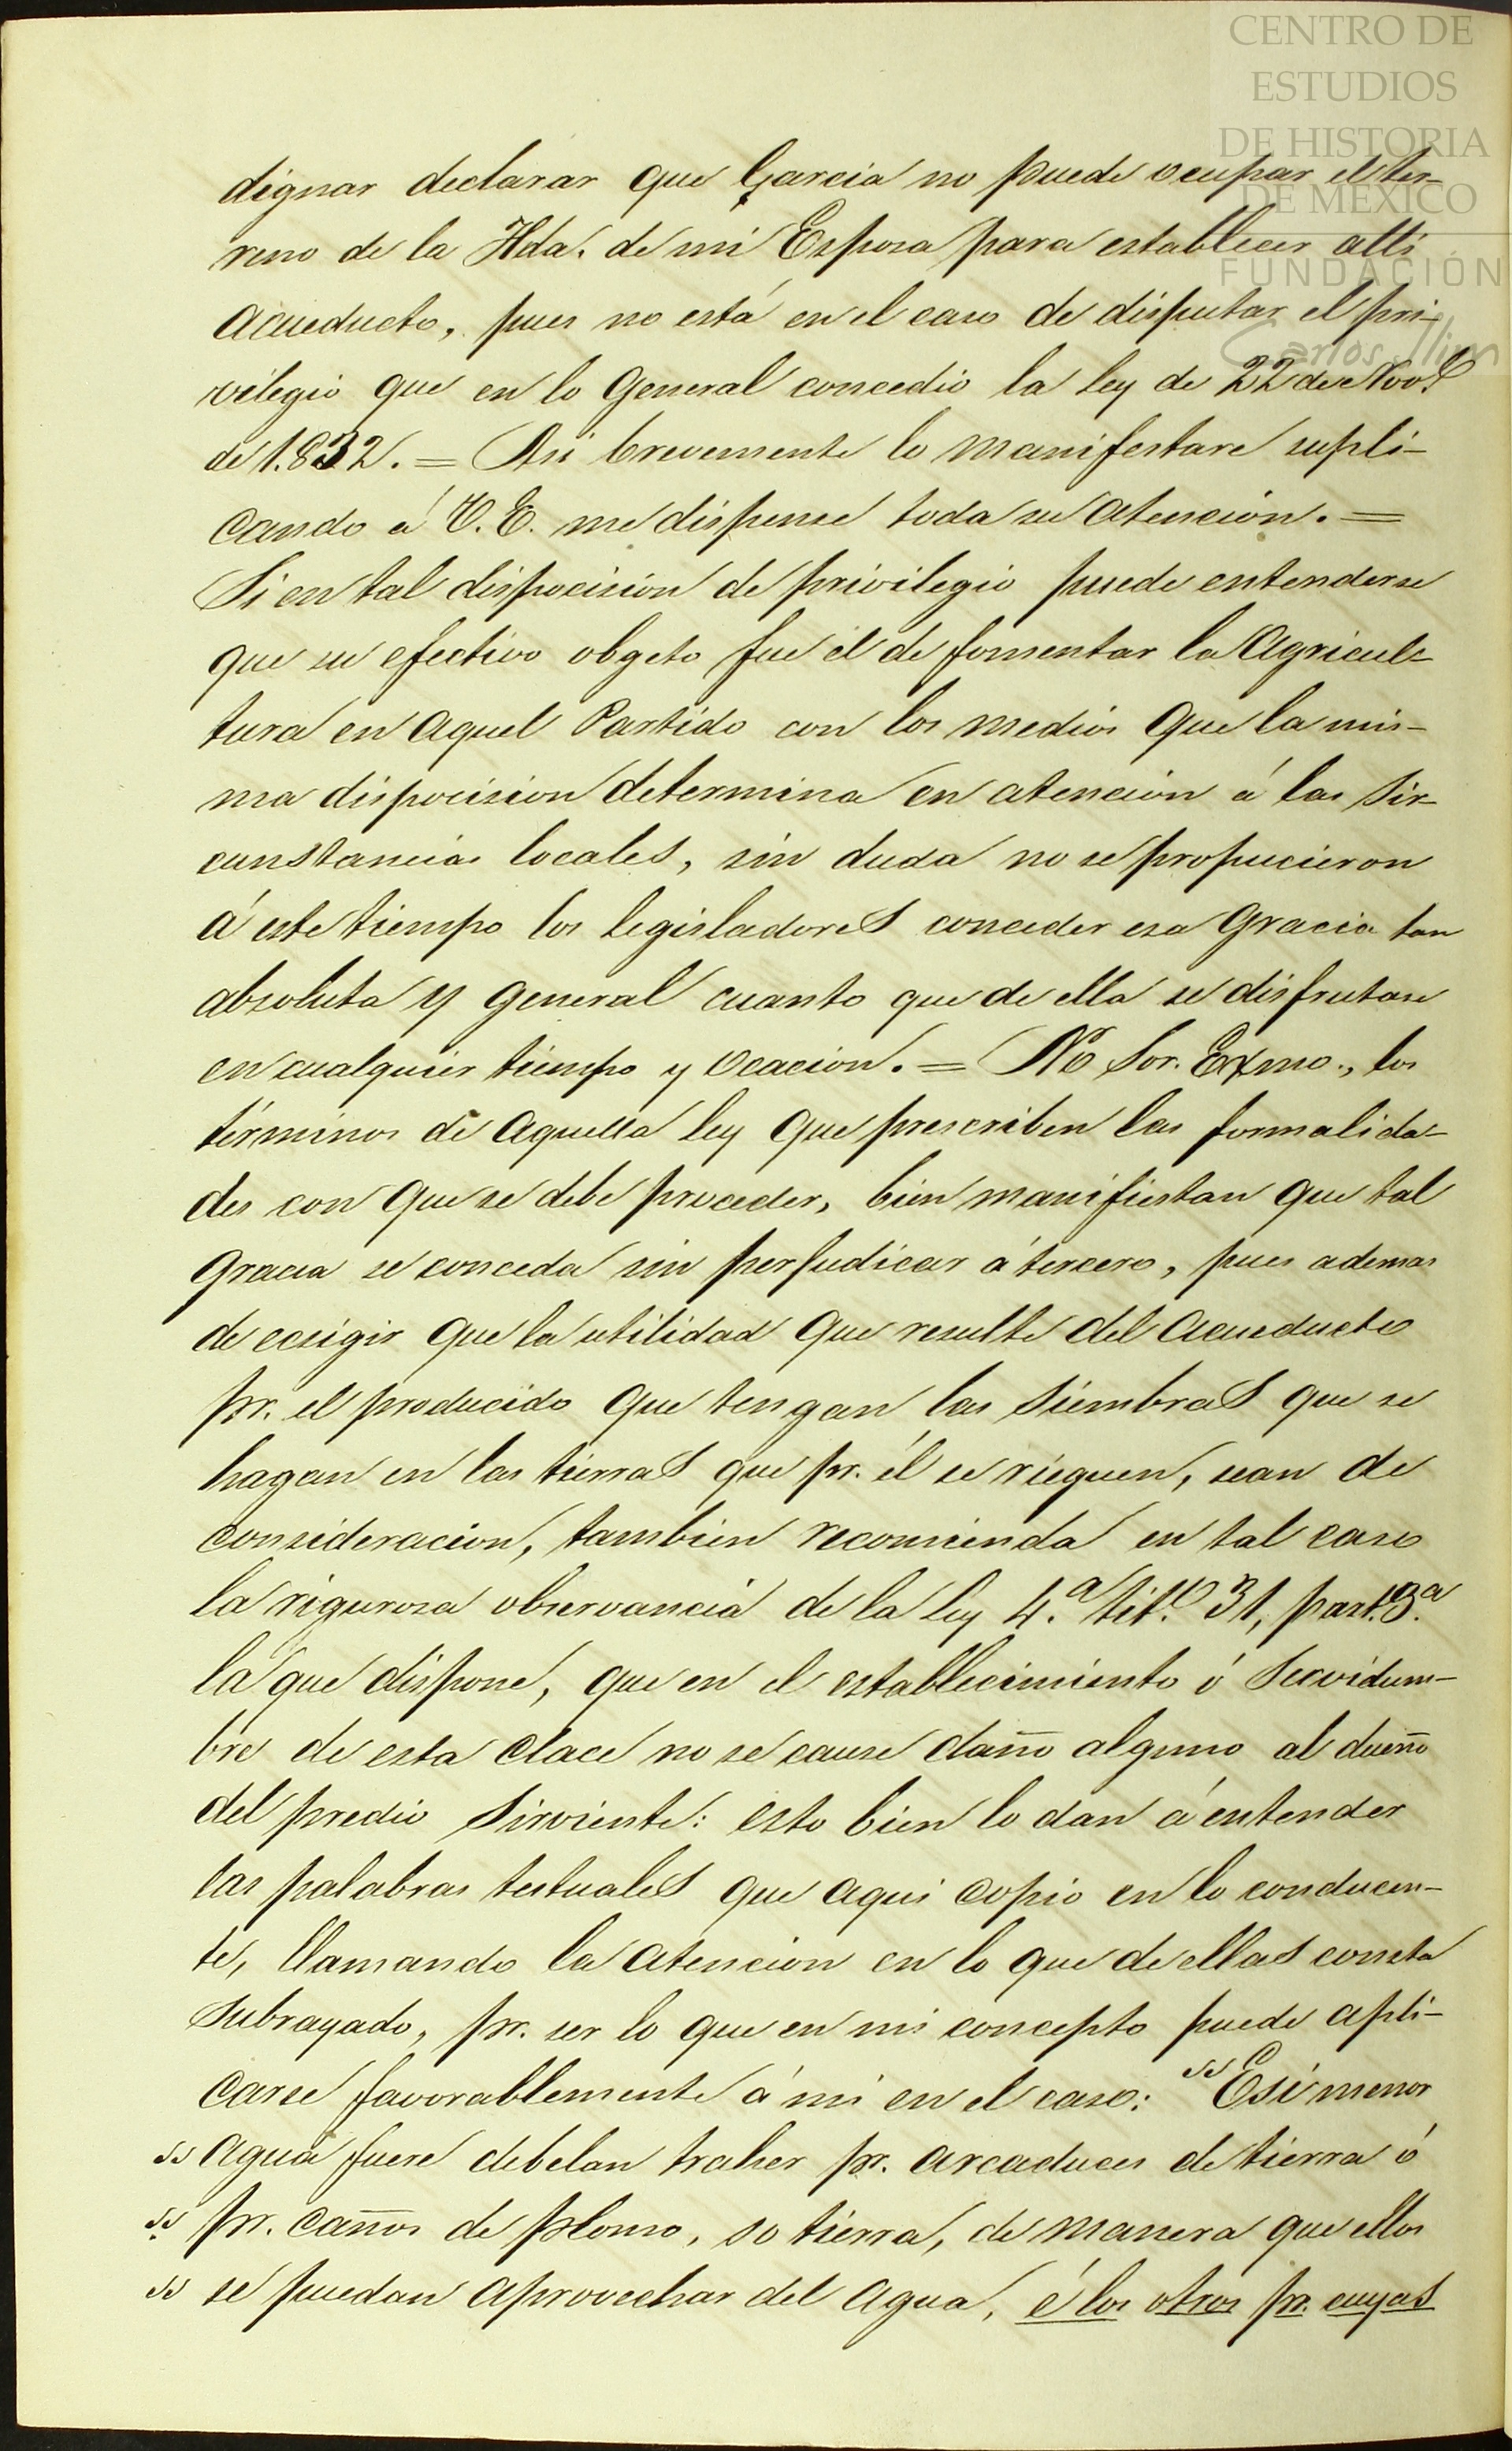 CENTRO DE
ESTUDIOS
DE HISTORIA
DE MÉXICO
FUNDACIÓN
Carlos Slim
dignar declarar que Garcia no puede ocupar el ter-
reno de la Hda. de mi Esposa para establecer alli
acueducto, pues no está en el caso de disputar el pri-
vilegio que en lo general concedió la ley de 22 de Nove.
de 1.832. = Asi brevemente lo manifestare supli-
cando á V. E. me dispense toda su atencion. =
Si en tal disposicion de privilegio puede entenderse
que su efectivo obgeto fue el de fomentar la agricul-
tura en aquel Partido con los medios que la mis-
ma disposicion determina en atencion á las sir-
cunstancias locales, sin duda no se propucieron
á este tiempo los legisladores conceder esa gracia tan
absoluta y general cuanto que de ella se disfrutase
en cualquier tiempo y ocacion. = No Sor. Exmo., los
términos de aquella ley que prescriben las formalida-
des con que se debe proceder, bien manifiestan que tal
gracia se conceda sin perjudicar á tercero, pues ademas
de ecsigir que la utilidad que resulte del acueducto
pr. el producido que tengan las siembras que se
hagan en las tierras que pr. él se rieguen, sean de
consideracion, tambien recomienda en tal caso
la rigurosa observancia de la ley 4.ª tit.º 31, part. 3.ª
la que dispone, que en el establecimiento ó servidum-
bre de esta clace no se cause daño alguno al dueño
del predio sirviente: esto bien lo dan á entender
las palabras testuales que aqui copio en lo conducen-
te, llamando la atencion en lo que de ellas consta
subrayado, pr. ser lo que en mi concepto puede apli-
carse favorablemente á mi en el caso: "E si menor
" agua fuere debelan traher pr. arcaduces de tierra ó
" pr. caños de plomo, so tierra, de manera que ellos
" se puedan aprovechar del agua, é los otros pr. cuyas